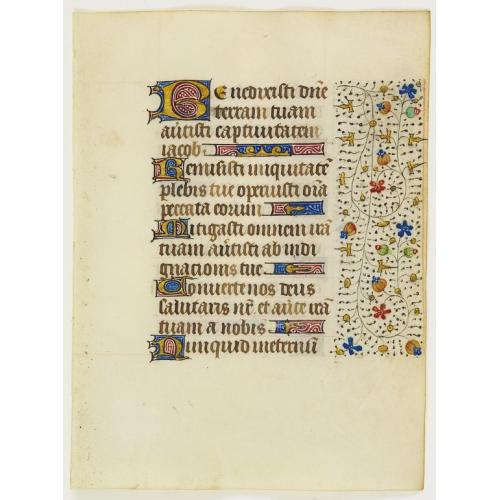 Benedixisti dñe
terram tuam
av̄tisti captivitatem
iacob
Remisisti iniquitatē
plebis tue operuisti oĩa
peccata eorum
Mitigasti omnem irā
tuam av̄tisti ab indi
gnacionis tue
Converte nos deus
salutaris nr̄ et av̄te irā
tuam a nobis
Numquid in eternū